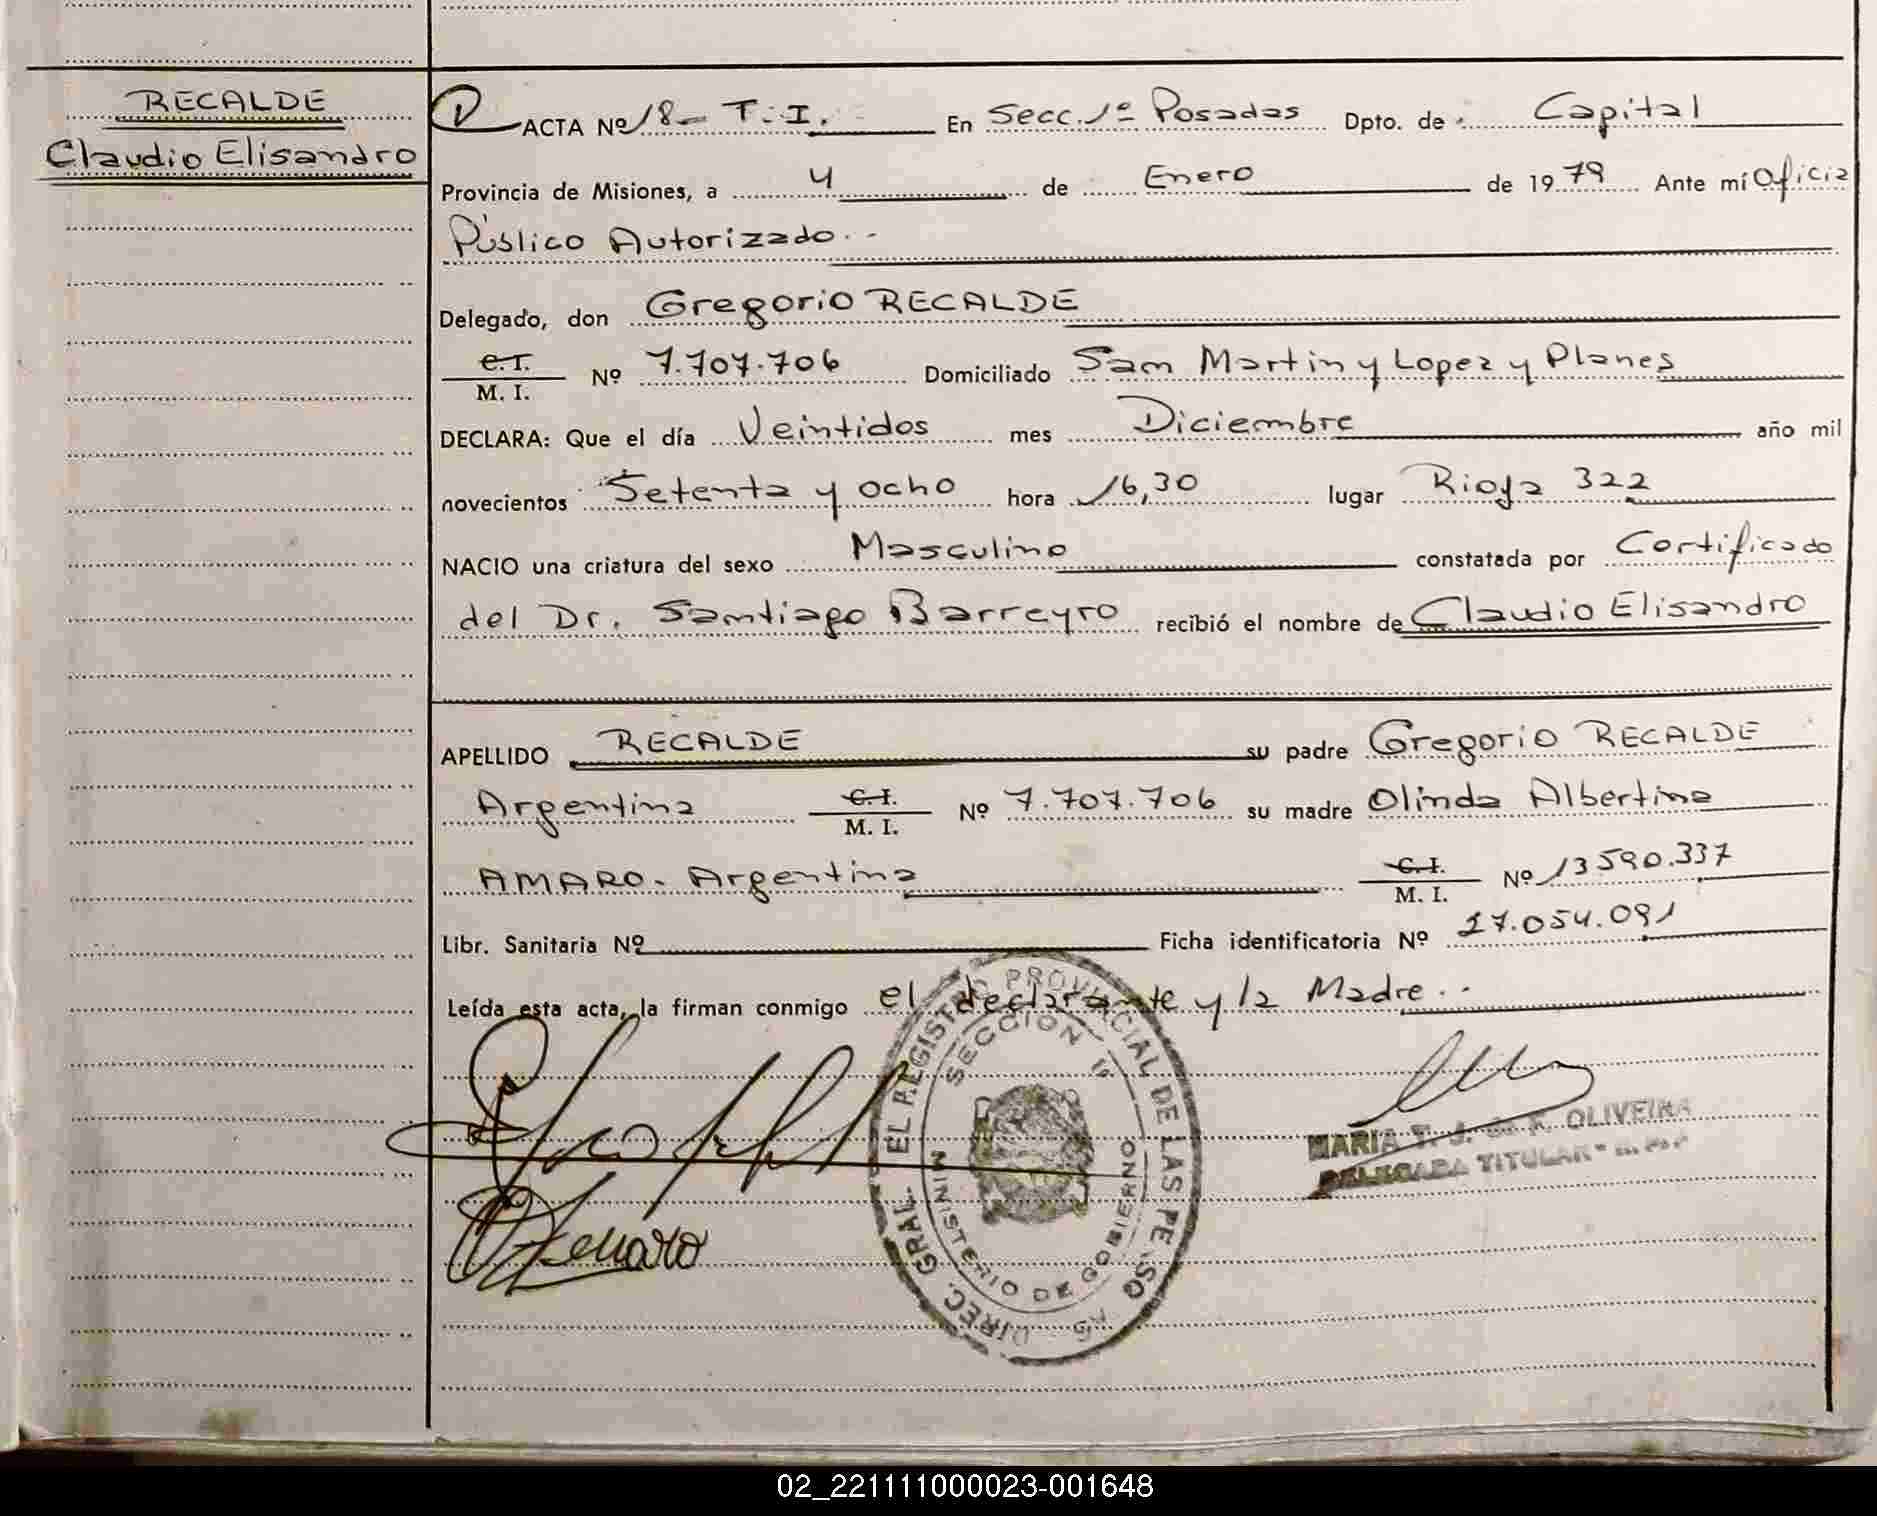 RECALDE
Claudio Elisandro
ACTA Nº 18- T.I. En Secc. 1º Posadas Dpto. de Capital
Provincia de Misiones, a 4 de Enero de 1979 Ante mí Oficia
Público Autorizado.--
Delegado, don Gregorio RECALDE
C.I.
M. I. Nº 7.707.706 Domiciliado San Martin y Lopez y Planes
DECLARA: Que el día Veintidos mes Diciembre año mil
novecientos Setenta y ocho hora 16,30 lugar Rioja 322
NACIO una criatura del sexo Masculino constatada por Certificado
del Dr. Santiago Barreyro recibió el nombre de Claudio Elisandro
APELLIDO RECALDE su padre Gregorio RECALDE
Argentina C.I.
M. I. Nº 7.707.706 su madre Olinda Albertina
AMARO. Argentina C.I.
M. I. Nº 13590.337
Libr. Sanitaria Nº Ficha identificatoria Nº 27.054.091
Leída esta acta, la firman conmigo el declarante y la Madre..
DIREC. GRAL. EL REGISTRO PROVINCIAL DE LAS PERSONAS
SECCION 1a
MINISTERIO DE GOBIERNO
MARIA T. J. de F. OLIVEIRA
DELEGADA TITULAR
02_221111000023-001648